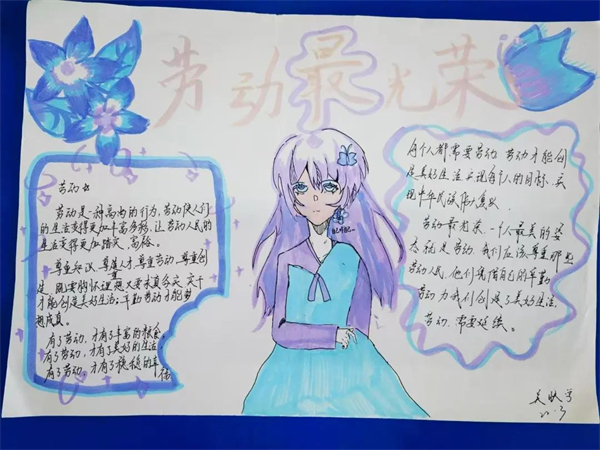 劳动最光荣
劳动
劳动是一种高尚的行为,劳动使人们
的生活变得更加丰富多彩,让劳动人民的
生活变得更加踏实、高裕。
尊重知识、尊重人才、尊重劳动、尊重创
造,既要胸怀理想又要求真务实,实干
才能创造美好生活;辛勤劳动才能梦
想成真。
有了劳动,才有了丰富的粮食。
有了劳动,才有了美好的生活
有了劳动,才有了安稳的幸
福
每个人都需要劳动,劳动才能创
造美好生活,实现每个人的目标,实
现中华民族伟大复兴
劳动最光荣,一个人最美的姿
态就是劳动。我们应该尊重那些
劳动人民,他们凭借自己的辛勤
劳动为我们创造了美好生活,
劳动,需要延续。